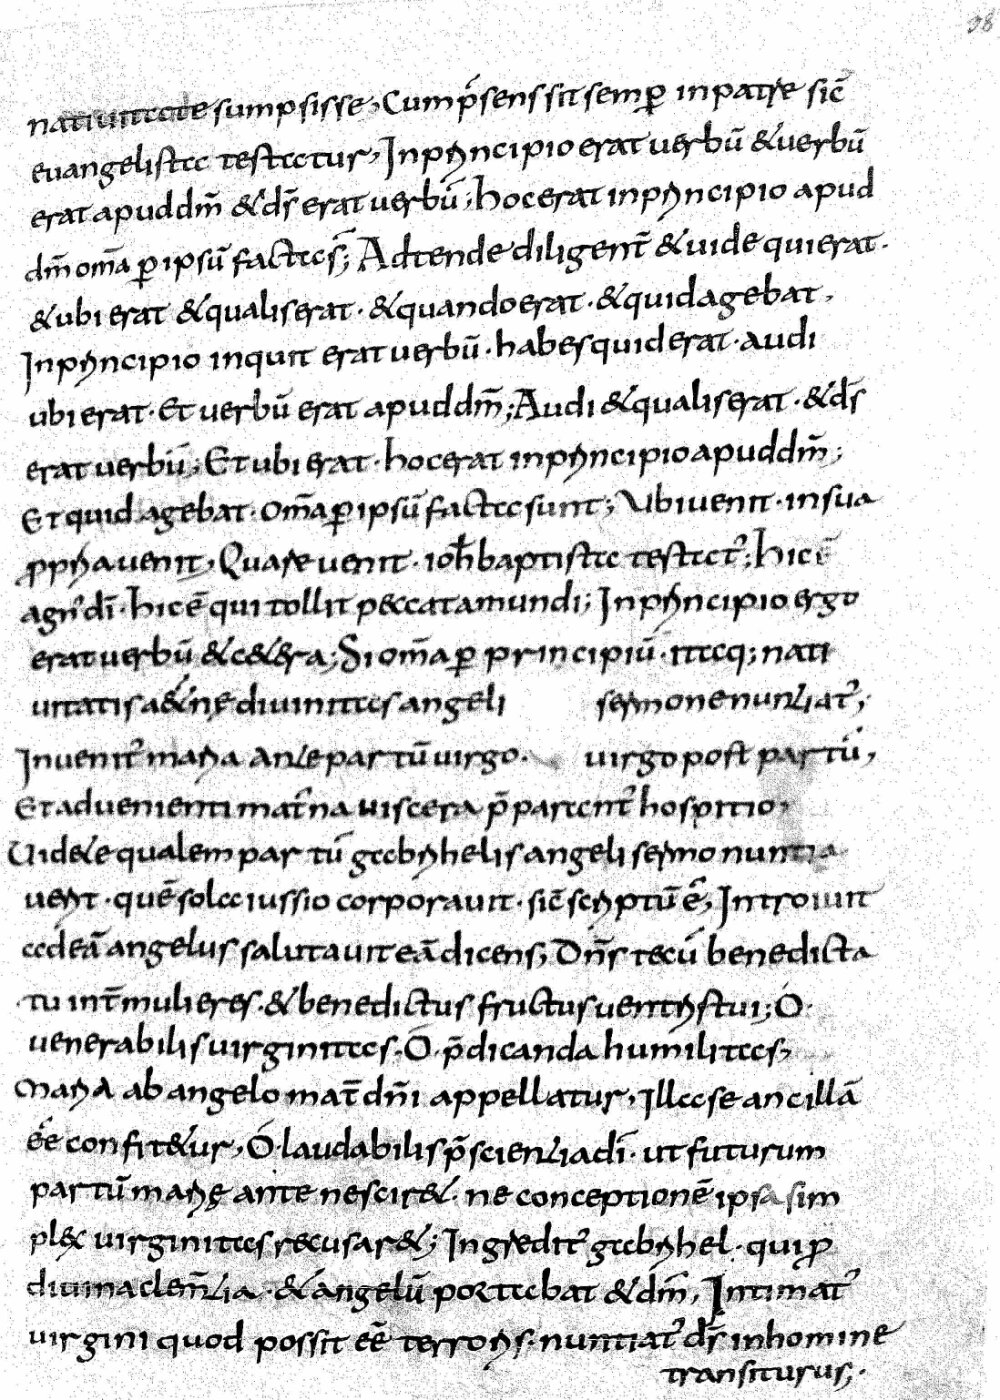 98
natiuitate sumpsisse, Cum p̄sens sit semꝑ in patre sic̄
euangelista testatur, In principio erat uerbū &uerbū
erat apud dm̄ &ds̄ erat uerbū; hoc erat in principio apud
dm̄ om̄a ꝑ ipsū facta s̄; Adtende diligent̄ &uide qui erat·
&ubi erat &qualis erat· &quando erat· &quid agebat,
In principio inquit erat uerbū· habes quid erat· audi
ubi erat· Et uerbū erat apud dm̄; Audi &qualis erat· &ds̄
erat uerbū; Et ubi erat· hoc erat in principio apud dm̄;
Et quid agebat· om̄a ꝑ ipsū facta sunt; Ubi uenit· in sua
ꝓpria uenit, Quare uenit· ioh̄ baptista testat᷑; hic ē
agn᷒ dī· hic ē qui tollit peccata mundi; In principio ergo
erat uerbū &c&era; Si om̄a ꝑ principiū· itaq; nati
uitatis a&ne diuinitas angeli sermone nuntiat᷑;
Inuenit᷑ maria ante partū uirgo· uirgo post partū,
Et aduenienti mat̄na uiscera p̄parent᷑ hospitio,
Uidete qualem partū gabrihelis angeli sermo nuntia
uerit· quē sola iussio corporauit· sic̄ scriptū ē, Introiuit
ad eā angelus salutauit eā dicens, Dn̄s tecū benedicta
tu int̄ mulieres· &benedictus fructus uentris tui; Ó·
uenerabilis uirginitas· Ó· p̄dicanda humilitas,
Maria ab angelo mat̄ dn̄i appellatur, Illa se ancillā
eē confit&ur, Ó· laudabilis p̄scientia dī· ut futurum
partū marię ante nescir&· ne conceptionē ipsa sim
plex uirginitas recusar&; Ingredit᷑ gabrihel· qui ꝓ
diuina clem̄tia· &angelū portabat &dm̄, Intimat᷑
uirgini quod possit eē terroris· nuntiat᷑ ds̄ in homine
transiturus;·